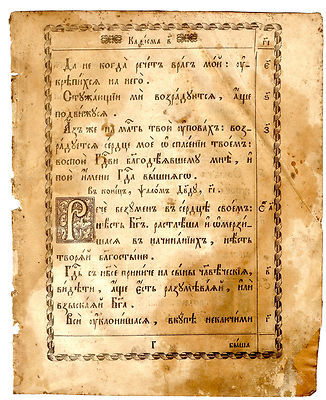 Каѳисма в҃
Да не когда рече́тъ врагъ мо́й: ѹ҆
крѣпи́хсѧ на него.
Стꙋжа́ющїи ми возра́дꙋютсѧ, а҆́ще
подви́жꙋсѧ.
А҆́зъ же на мл҃ть твою̀ ѹ҆пова́хъ: воз
ра́дꙋетсѧ се́рдце моѐ ѡ҆ спасе́нїи твое́мъ:
воспою̀ гдⷭ҇ви благодѣ́ѧвшемꙋ мнѣ̀, и҆
пою̀ и҆́мени гдⷭ҇а вы́шнѧгѡ.
Въ коне́цъ, ѱало́мъ дв҃дꙋ, г҃і.
Речѐ безꙋ́менъ въ се́рдцѣ свое́мъ:
нѣ́сть бг҃ъ. растлѣ́ша и҆ ѡ҆мерзи́
шасѧ въ начина́нїихъ, нѣ́сть
творѧ́й благосты́ню.
Гдⷭ҇ь съ нб҃сѐ прини́че на сы́ны чл҃вѣ́ческїѧ,
ви́дѣти, а҆́ще є҆́сть разꙋмѣва́ѧй, и҆лѝ
взыска́ѧй бг҃а.
Всѝ ѹ҆клони́шасѧ, вкꙋ́пѣ неключи́ми
бы́ша